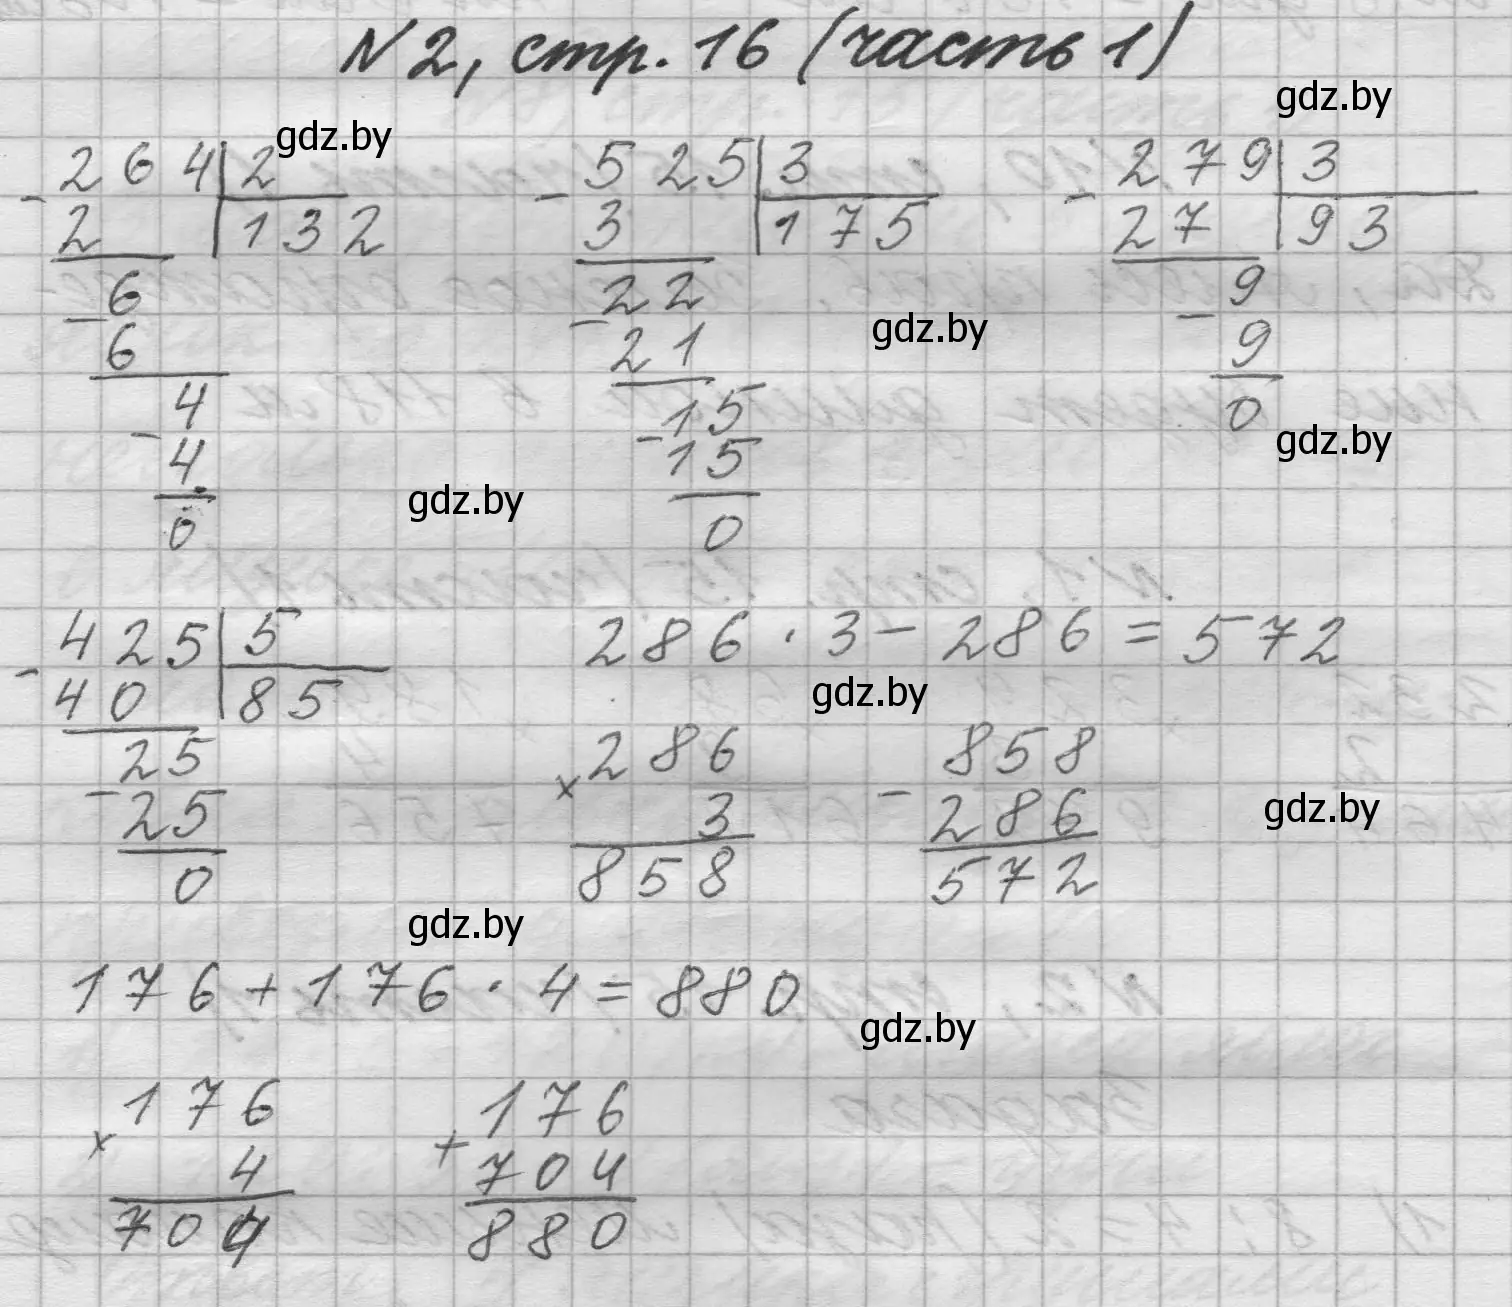 N2, стр. 16 (часть 1)
gdz.by
gdz.by
- 264 | 2
2 | 132
- 6
6
- 4
4
0
- 525 | 3
3 | 175
- 22
21
- 15
15
0
- 279 | 3
27 | 93
- 9
9
0
gdz.by
gdz.by
gdz.by
- 425 | 5
40 | 85
- 25
25
0
286 · 3 - 286 = 572
gdz.by
× 286
3
858
- 858
286
572
gdz.by
gdz.by
176 + 176 · 4 = 880
gdz.by
× 176
4
704
+ 176
704
880